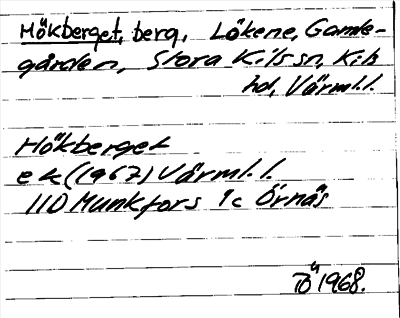 Hökberget, berg, Lökene, Gamle-
gården, Stora Kils sn, Kils
hd, Värml.l.
Hökberget
ek (1967) Värml.l.
11D Munkfors 1c Örnäs
1968.